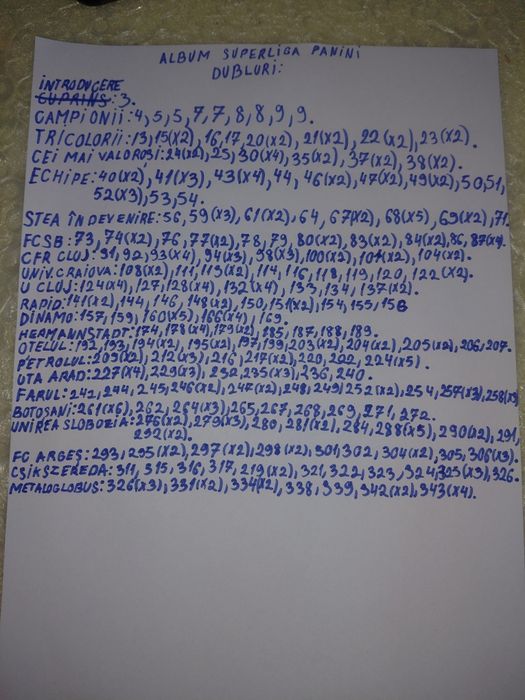 ALBUM SUPERLIGA PANINI
DUBLURI:
INTRODUCERE
CUPRINS: 3.
CAMPIONII: 4, 5, 5, 7, 7, 8, 8, 9, 9.
TRICOLORII: 13, 15(X2), 16, 17, 20(X2), 21(X2), 22(X2), 23(X2).
CEI MAI VALOROȘI: 24(X2), 25, 30(X4), 35(X2), 37(X2), 38(X2).
ECHIPE: 40(X2), 41(X3), 43(X4), 44, 46(X2), 47(X2), 49(X2), 50, 51,
52(X3), 53, 54.
STEA ÎN DEVENIRE: 56, 59(X3), 61(X2), 64, 67(X2), 68(X5), 69(X2), 71.
FCSB: 73, 74(X2), 76, 77(X2), 78, 79, 80(X2), 83(X2), 84(X2), 86, 87(X4).
CFR CLUJ: 91, 92, 93(X4), 94(X3), 98(X3), 100(X2), 101(X2), 104(X2).
UNIV. CRAIOVA: 108(X2), 111, 113(X2), 114, 116, 118, 119, 120, 122(X2).
U CLUJ: 124(X4), 127, 128(X4), 132(X4), 133, 134, 137(X2).
RAPID: 141(X2), 144, 146, 148(X2), 150, 151(X2), 154, 155, 156
DINAMO: 157, 159, 160(X5), 166(X4), 169.
HERMANNSTADT: 174, 178(X4), 179(X2), 185, 187, 188, 189.
OȚELUL: 192, 193, 194(X2), 195(X2), 197, 199, 203(X2), 204(X2), 205(X2), 206, 207.
PETROLUL: 209(X2), 212(X3), 216, 217(X2), 220, 222, 224(X5).
UTA ARAD: 227(X4), 229(X3), 232, 235(X3), 236, 240.
FARUL: 242, 244, 245, 246(X2), 247(X2), 248, 249, 252(X2), 254, 257(X3), 258(X3)
BOTOȘANI: 261(X6), 262, 264(X3), 265, 267, 268, 269, 271, 272.
UNIREA SLOBOZIA: 276(X2), 279(X3), 280, 281(X2), 284, 288(X5), 290(X2), 291,
292(X2).
FC ARGEȘ: 293, 295(X2), 297(X2), 298(X2), 301, 302, 304(X2), 305, 306(X3).
CSIKSZEREDA: 311, 315, 316, 317, 219(X2), 321, 322, 323, 324, 325(X3), 326.
METALOGLOBUS: 326(X3), 331(X2), 334(X2), 338, 339, 342(X2), 343(X4).